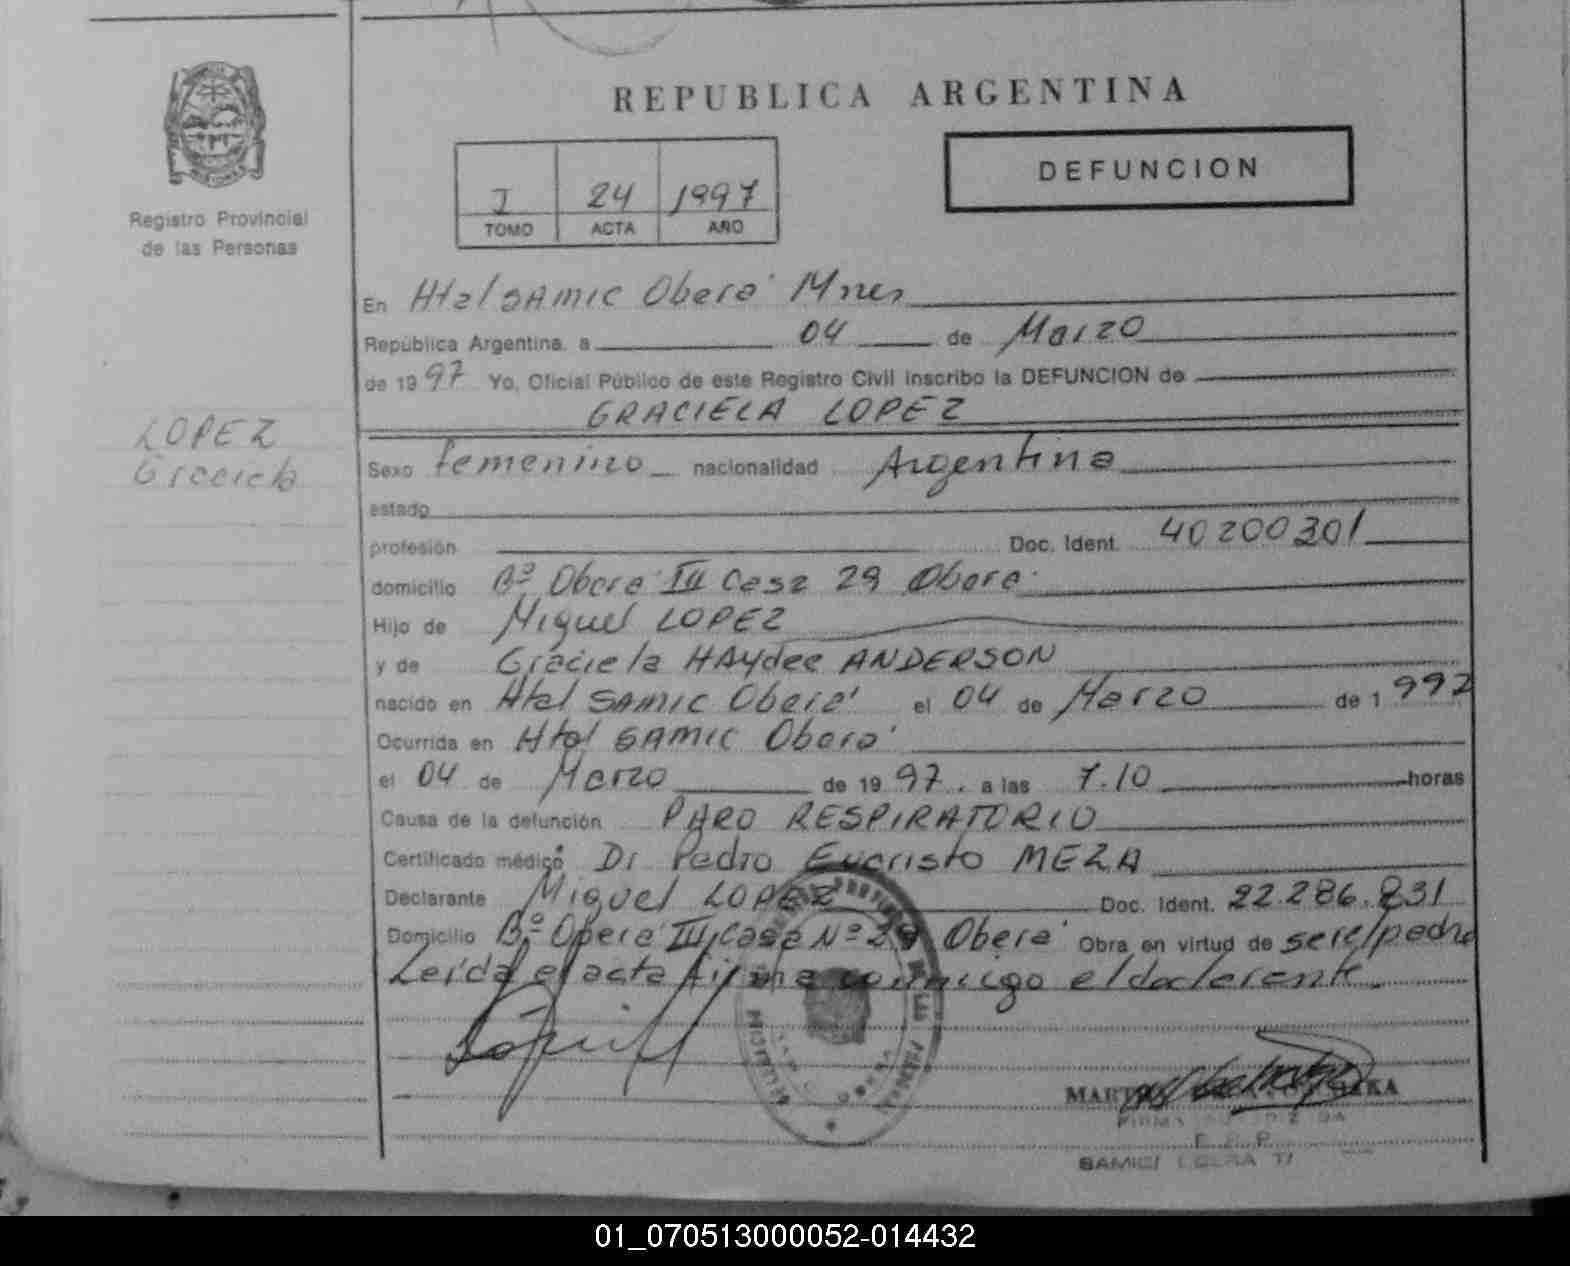 REPUBLICA ARGENTINA
DEFUNCION
I 24 1997
TOMO ACTA AÑO
Registro Provincial
de las Personas
En Htal SAMIC Oberá Mnes
República Argentina, a 04 de Marzo
de 1997 Yo, Oficial Público de este Registro Civil inscribo la DEFUNCION de
GRACIELA LOPEZ
LOPEZ
Graciela
Sexo femenino nacionalidad Argentina
estado
profesión Doc. Ident. 40200301
domicilio Bº Oberá III Casa 29 Oberá
Hijo de Miguel LOPEZ
y de Graciela HAydee ANDERSON
nacido en Htal SAMIC Oberá el 04 de Marzo de 1997
Ocurrida en Htal SAMIC Oberá
el 04 de Marzo de 1997. a las 7.10 horas
Causa de la defunción PARO RESPIRATORIO
Certificado médico Dr Pedro Evaristo MEZA
Declarante Miguel LOPEZ Doc. Ident. 22.286.831
Domicilio Bº Opera III, Casa Nº 29 Oberá Obra en virtud de ser el padre
Leída el acta firma conmigo el declarante.
01_070513000052-014432